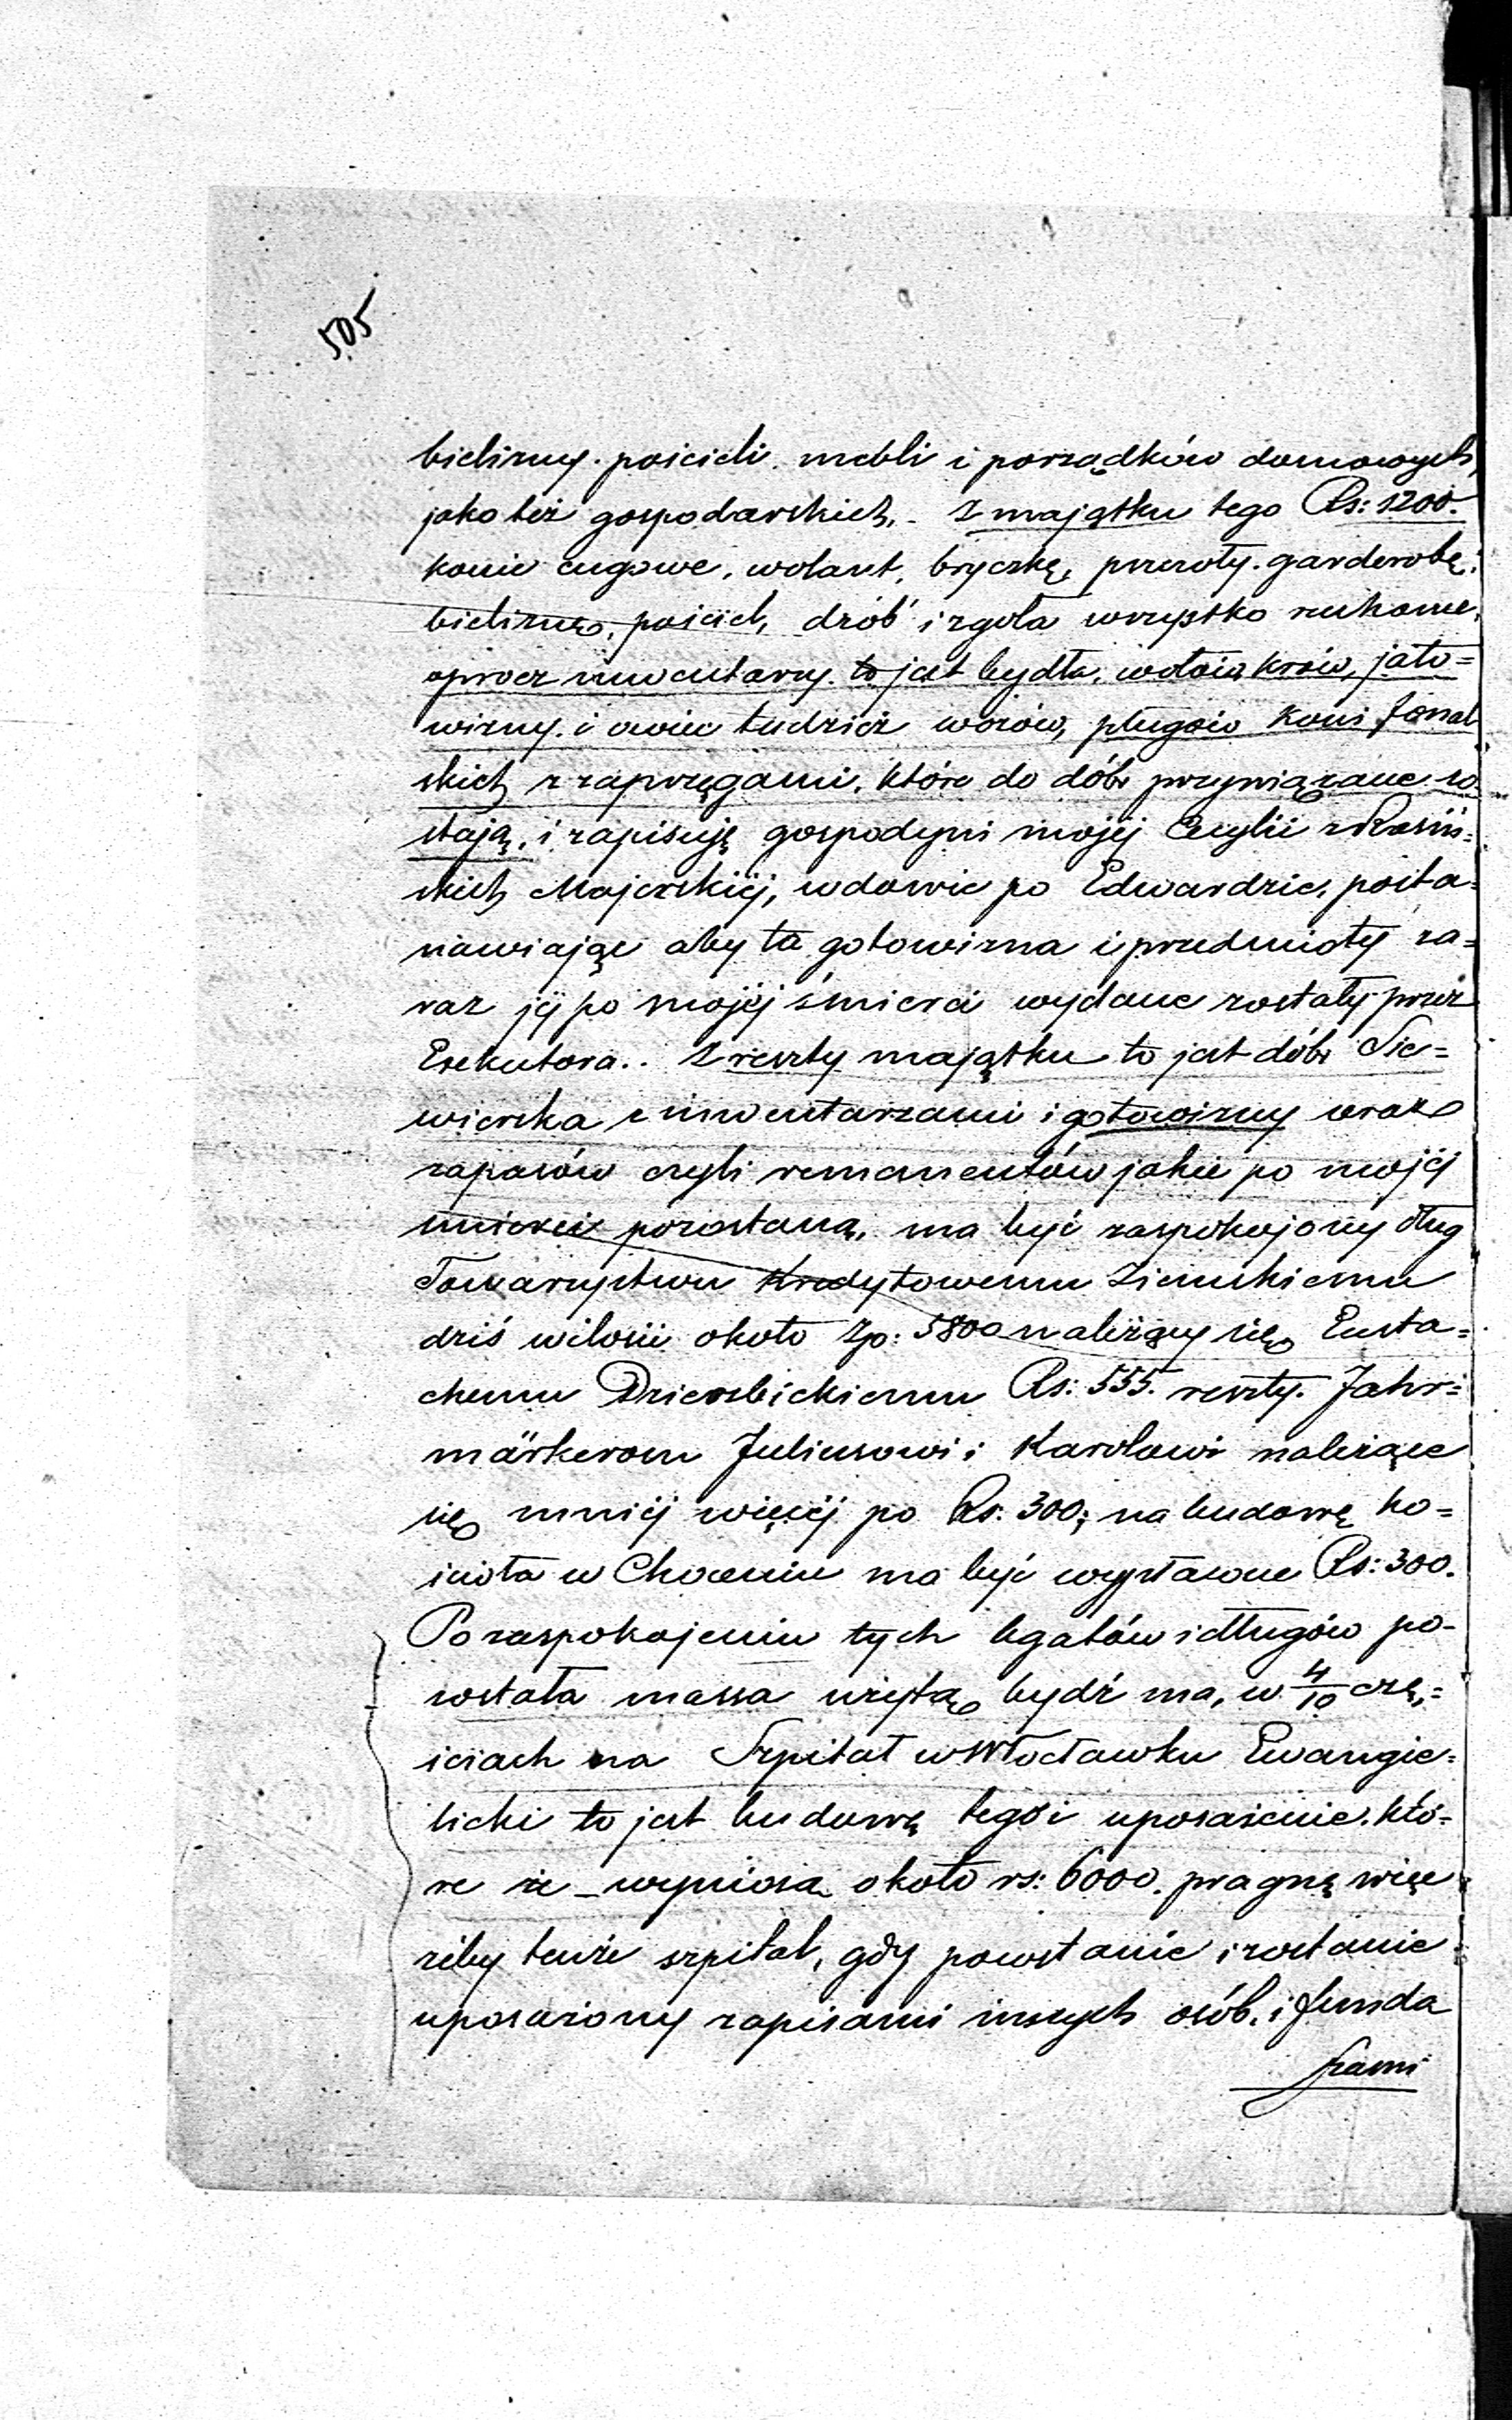 505
bielizny. pościeli. mebli i porządków domowych,
jako też gospodarskich. - Z majątku tego Rs: 1200.
konie cugowe. wolant, bryczkę, przenoty. garderobę,
bieliznę, pościel, drób' i zgoła wszystko ruchome,
oprocz inwentarzy. to jest bydła, wołów krów, jało=
wizny. i owiec tudzież wozów, pługów koni fornal
skich z zaprzęgami, które do dóbr przywiązane zo=
stają, i zapisuję gospodyni mojéj Cecylii z Rosiń=
skich Majerskiéj, wdowie po Edwardzie, posta=
nawiając aby ta gotowizna i przedmioty za=
raz jéj po mojéj śmierci wydane zostały przez
Exekutora.. Z reszty majątku to jest dóbr Sie=
wierska z inwentarzami i gotowizny oraz
zapasów czyli remanentów jakie po mojéj
śmierci pozostaną, ma być zaspokojony dług
Towarzystwu Kredytowemu Ziemskiemu
dziś w ilości około Zp: 5800 należący się Eusta=
chemu Dzierzbickiemu Rs: 555. reszty. Jahr=
märkerom Juliusowi i Karolowi należące
się mniéj więcéj po Rs. 300; na budowę ko=
ścioła w Choceniu ma być wypłacone Rs: 300.
Po zaspokojeniu tych legatów i długów po-
została massa użytą bydź ma, w 4/10 czę=
ściach na Szpital w Włocławku Ewangie=
licki to jest budowę tegoż i uposażenie. któ=
re że wyniosą około rs: 6000. pragnę więc
żeby tenże szpital, gdy powstanie i zostanie
uposażony zapisami innych osób. i fundu
szami